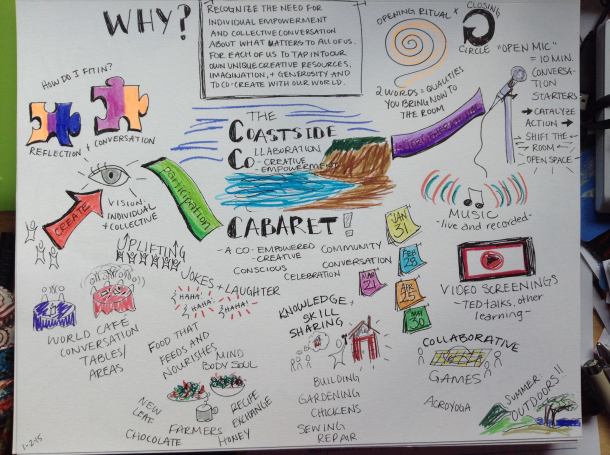 WHY?
RECOGNIZE THE NEED FOR
INDIVIDUAL EMPOWERMENT
AND COLLECTIVE CONVERSATION
ABOUT WHAT MATTERS TO ALL OF US.
FOR EACH OF US TO TAP INTO OUR
OWN UNIQUE CREATIVE RESOURCES,
IMAGINATION, + GENEROSITY AND
TO CO-CREATE WITH OUR WORLD.
OPENING RITUAL &
CLOSING
CIRCLE
2 WORDS = QUALITIES
YOU BRING NOW TO
THE ROOM
"OPEN MIC"
= 10 MIN.
CONVERSA-
TION
STARTERS
→ CATALYZE
ACTION →
SHIFT THE
ROOM ←
OPEN SPACE
HOW DO I FIT IN?
REFLECTION + CONVERSATION
THE
COASTSIDE
COLLABORATION
CO-CREATIVE
-EMPOWERMENT
CABARET!
- A CO-EMPOWERED
-CREATIVE
CONSCIOUS
COMMUNITY
CONVERSATION
CELEBRATION
CREATE
VISION:
INDIVIDUAL
+ COLLECTIVE
participation
MUSIC
-live and recorded-
JAN
31
FEB
28
MAR
21
APR
25
MAY
30
VIDEO SCREENINGS
-TED talks, other
learning-
UPLIFTING
JOKES + LAUGHTER
HAHA!
HAHA!
HAHA!
WORLD CAFE
CONVERSATION
TABLES/
AREAS
FOOD THAT
FEEDS AND
NOURISHES
MIND
BODY SOUL
NEW
LEAF
CHOCOLATE
FARMERS
HONEY
RECIPE
EXCHANGE
KNOWLEDGE +
SKILL
SHARING
BUILDING
GARDENING
CHICKENS
SEWING
REPAIR
COLLABORATIVE
GAMES
ACROYOGA
SUMMER:
OUTDOORS!!